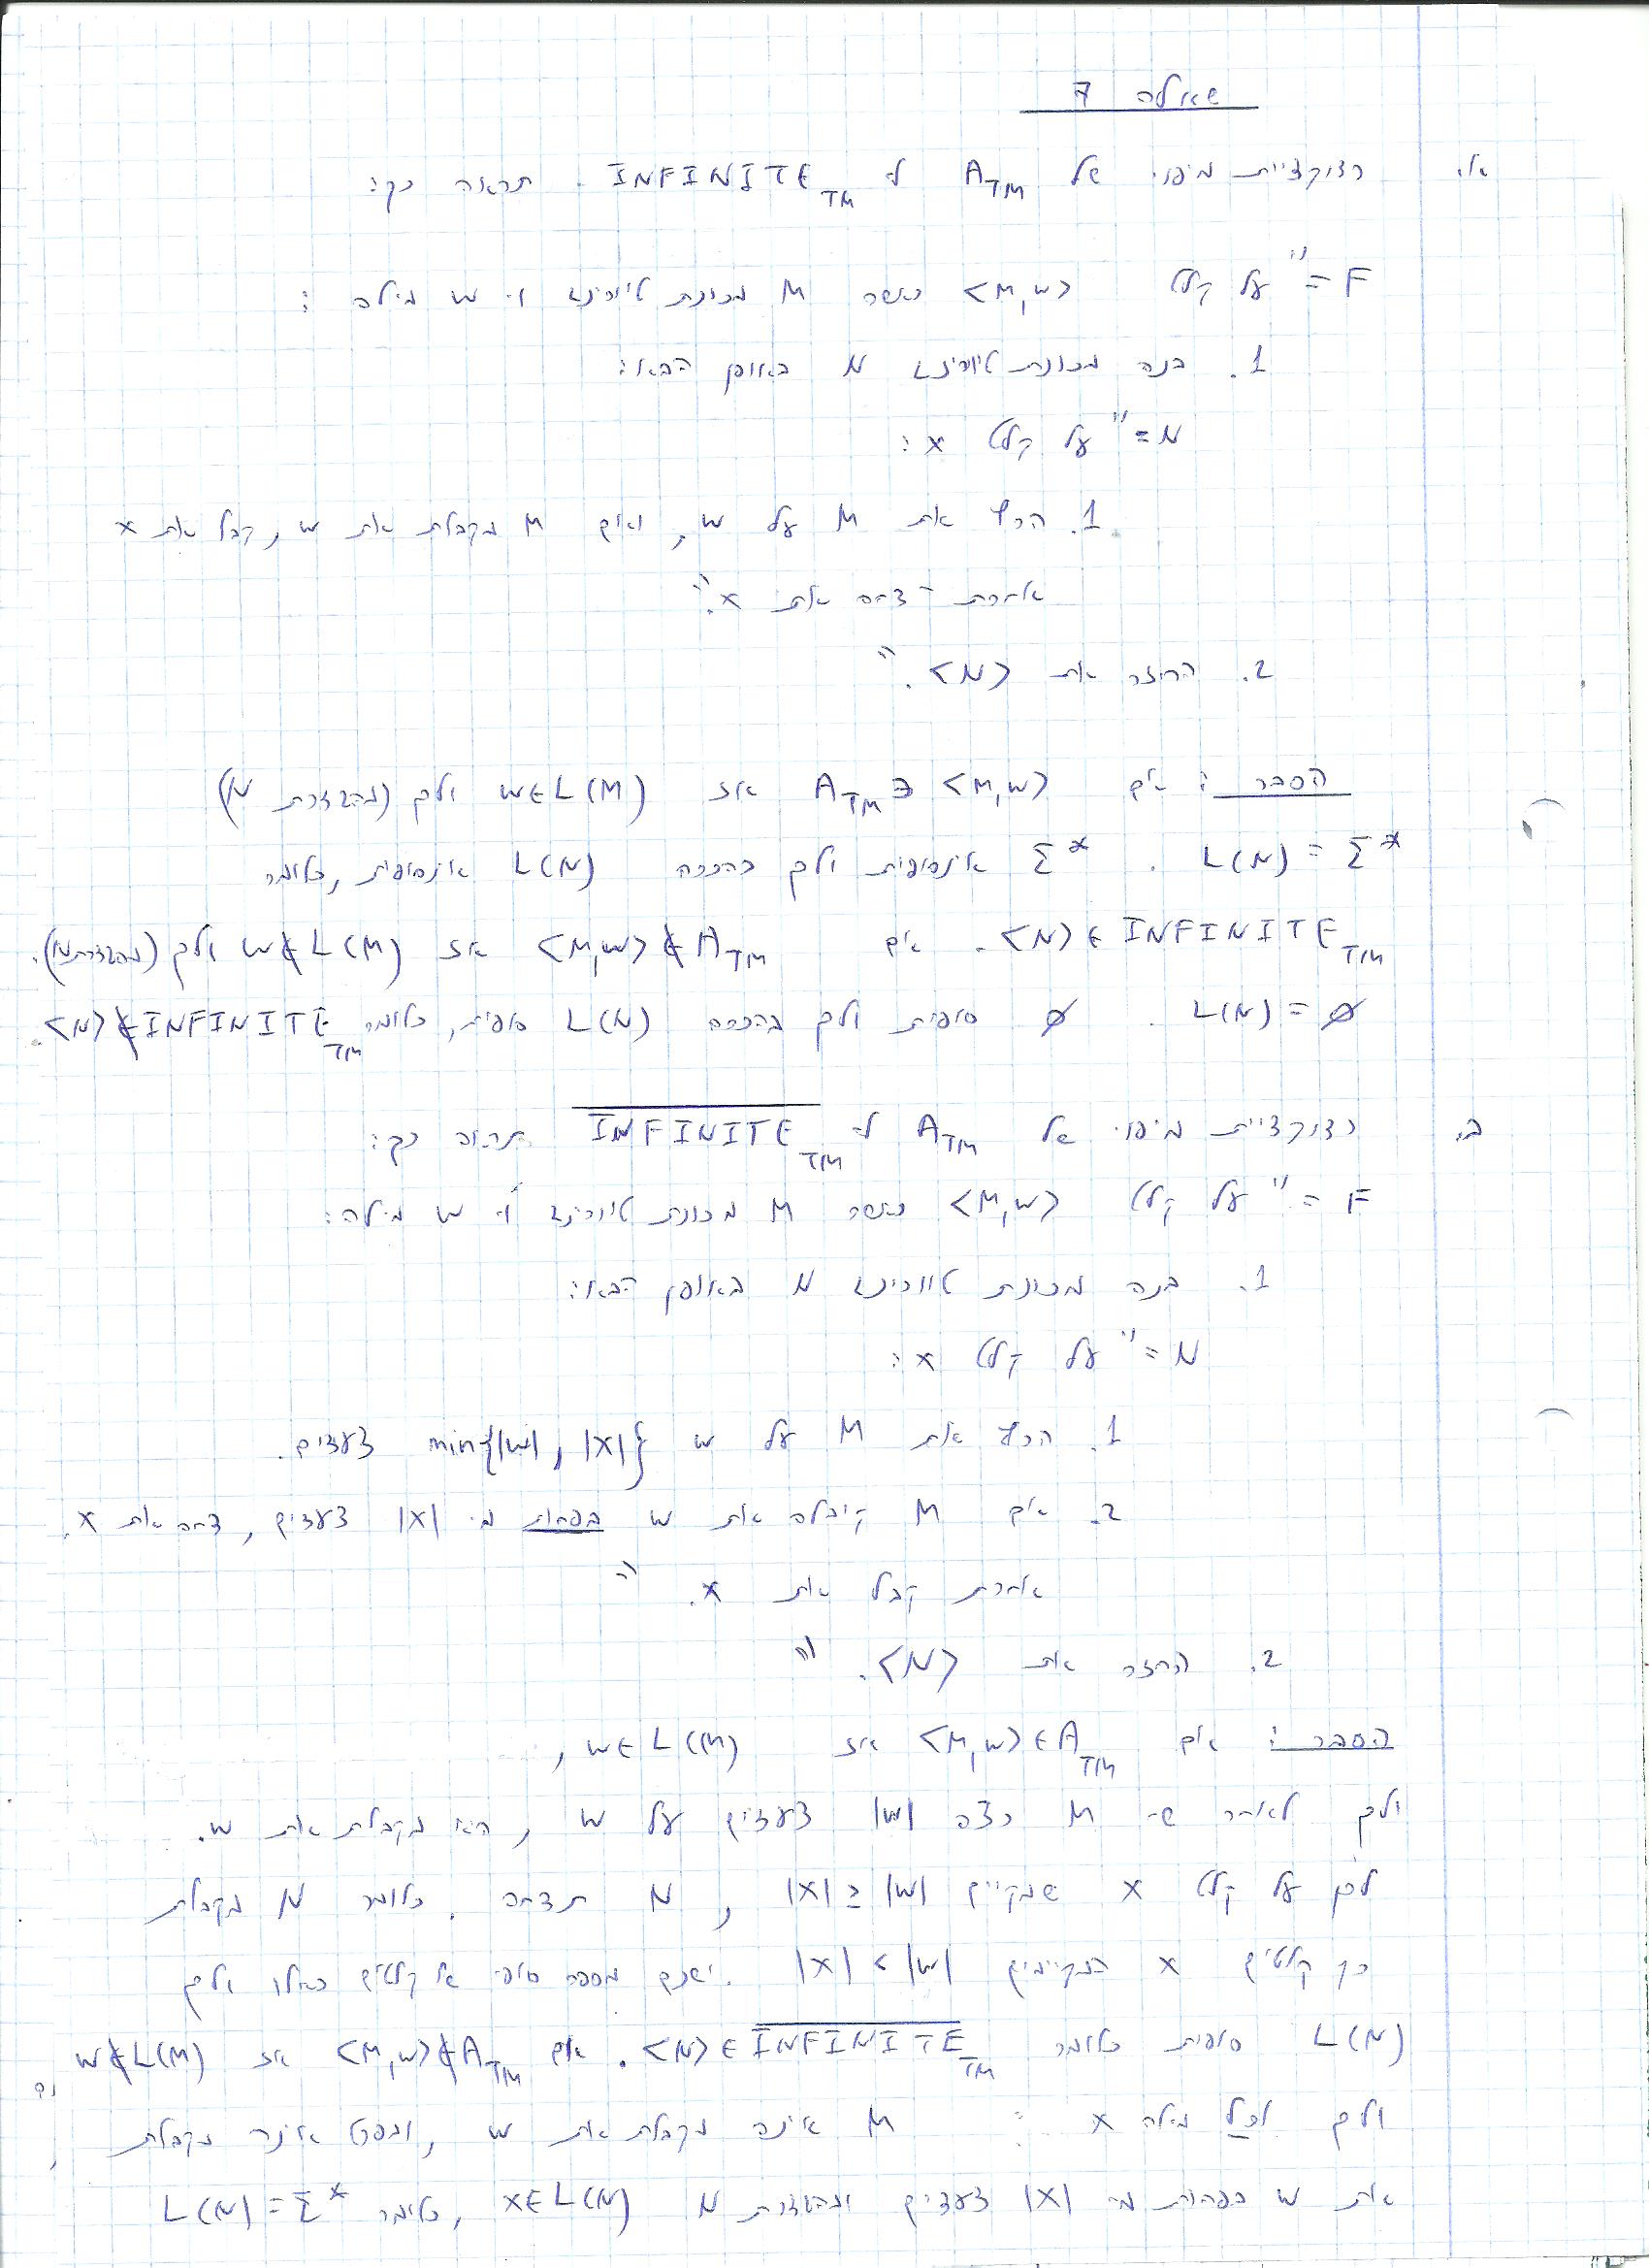 שאלה 7
א. רדוקציית מיפוי של A_TM ל- INFINITE_TM תראה כך:
F = "על קלט <M,w> כאשר M מכונת טיורינג ו- w מילה:
1. בנה מכונת טיורינג N באופן הבא:
N = "על קלט x:
1. הרץ את M על w, ואם M מקבלת את w, קבל את x
אחרת - דחה את x."
2. החזר את <N>."
הסבר: אם <M,w> ∈ A_TM אז w∈L(M) ולכן (מהגדרת N)
L(N) = Σ*. Σ* אינסופית ולכן בהכרח L(N) אינסופית, כלומר
<N> ∈ INFINITE_TM. אם <M,w> ∉ A_TM אז w∉L(M) ולכן (מהגדרת N).
L(N) = ∅. ∅ סופית ולכן בהכרח L(N) סופית, כלומר <N> ∉ INFINITE_TM.
ב. רדוקציית מיפוי של A_TM ל- \overline{INFINITE_TM} תראה כך:
F = "על קלט <M,w> כאשר M מכונת טיורינג ו- w מילה:
1. בנה מכונת טיורינג N באופן הבא:
N = "על קלט x:
1. הרץ את M על w min{|w|, |x|} צעדים.
2. אם M קיבלה את w בפחות מ- |x| צעדים, דחה את x.
אחרת קבל את x."
2. החזר את <N>."
הסבר: אם <M,w> ∈ A_TM אז w∈L(M),
ולכן לאחר ש- M רצה |w| צעדים על w, היא מקבלת את w.
לכן על קלט x שמקיים |x| ≥ |w|, N תדחה. כלומר N מקבלת
רק קלטים x המקיימים |x| < |w|. ישנם מספר סופי של קלטים כאלו ולכן
L(N) סופית כלומר <N> ∈ \overline{INFINITE_TM}. אם <M,w> ∉ A_TM אז w∉L(M)
ולכן לכל מילה x: M אינה מקבלת את w, ובפרט אינה מקבלת
את w בפחות מ- |x| צעדים ומהגדרת N x∈L(N), כלומר L(N) = Σ*